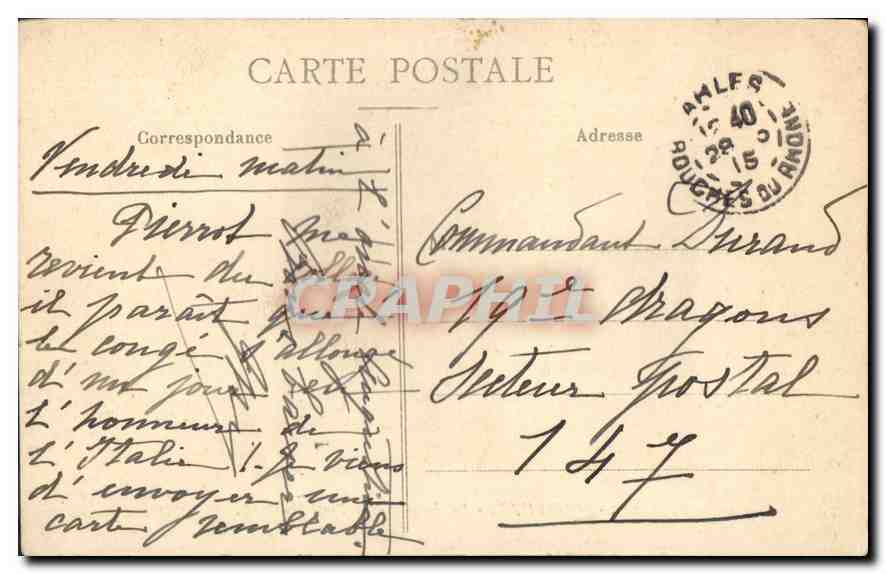 CARTE POSTALE
Correspondance
Adresse
ARLES
40
28 5
15
BOUCHES DU RHONE
Vendredi matin
Pierrot me
revient du
il paraît que
le congé s'allonge
d'un jour en
l'honneur de
l'Italie ! je viens
d'envoyer une
carte semblable
à
Commandant Durand
19e dragons
Secteur postal
147
CPAPHIL